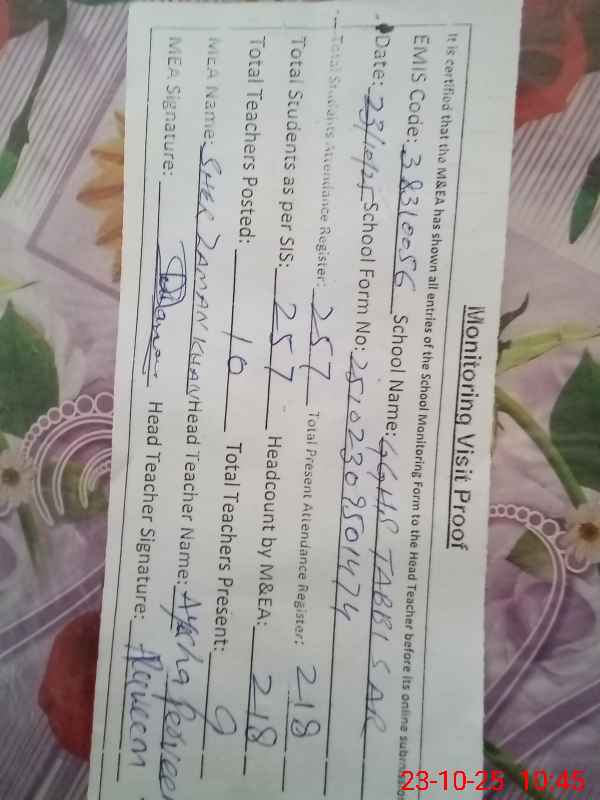 Monitoring Visit Proof
It is certified that the M&EA has shown all entries of the School Monitoring Form to the Head Teacher before its online
EMIS Code: 38310056 School Name: GGHS TABBI SAR
Date: 23/10/25 School Form No: 25102309501474
Total Students Attendance Register: 257 Total Present Attendance Register: 218
Total Students as per SIS: 257 Headcount by M&EA: 218
Total Teachers Posted: 10 Total Teachers Present: 9
MEA Name: SHER ZAMAN KHAN Head Teacher Name: Ayesha
MEA Signature: Head Teacher Signature:
23-10-25 10:45